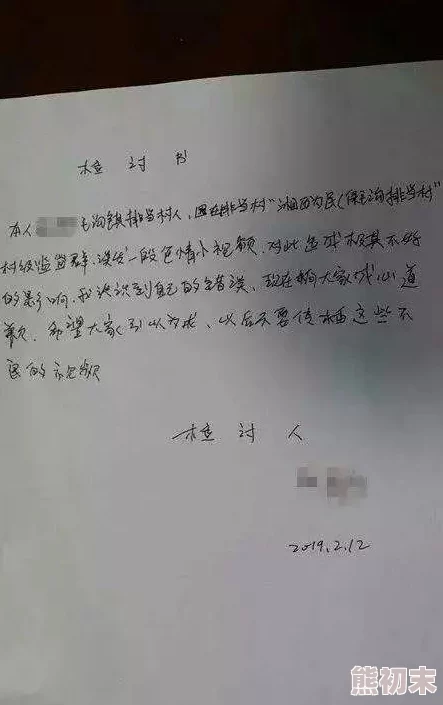 检讨书
本人 毛沟镇排当村人,因在排当村“湘西为民(保毛沟排当村”
村级监督群,误发一段色情小视频,对此造成极其不好
的影响,我认识到自己的错误,现在向大家诚心道
歉,希望大家引以为戒,以后不要传播这些不
良的视频
检讨人
2019.2.12
熊初末